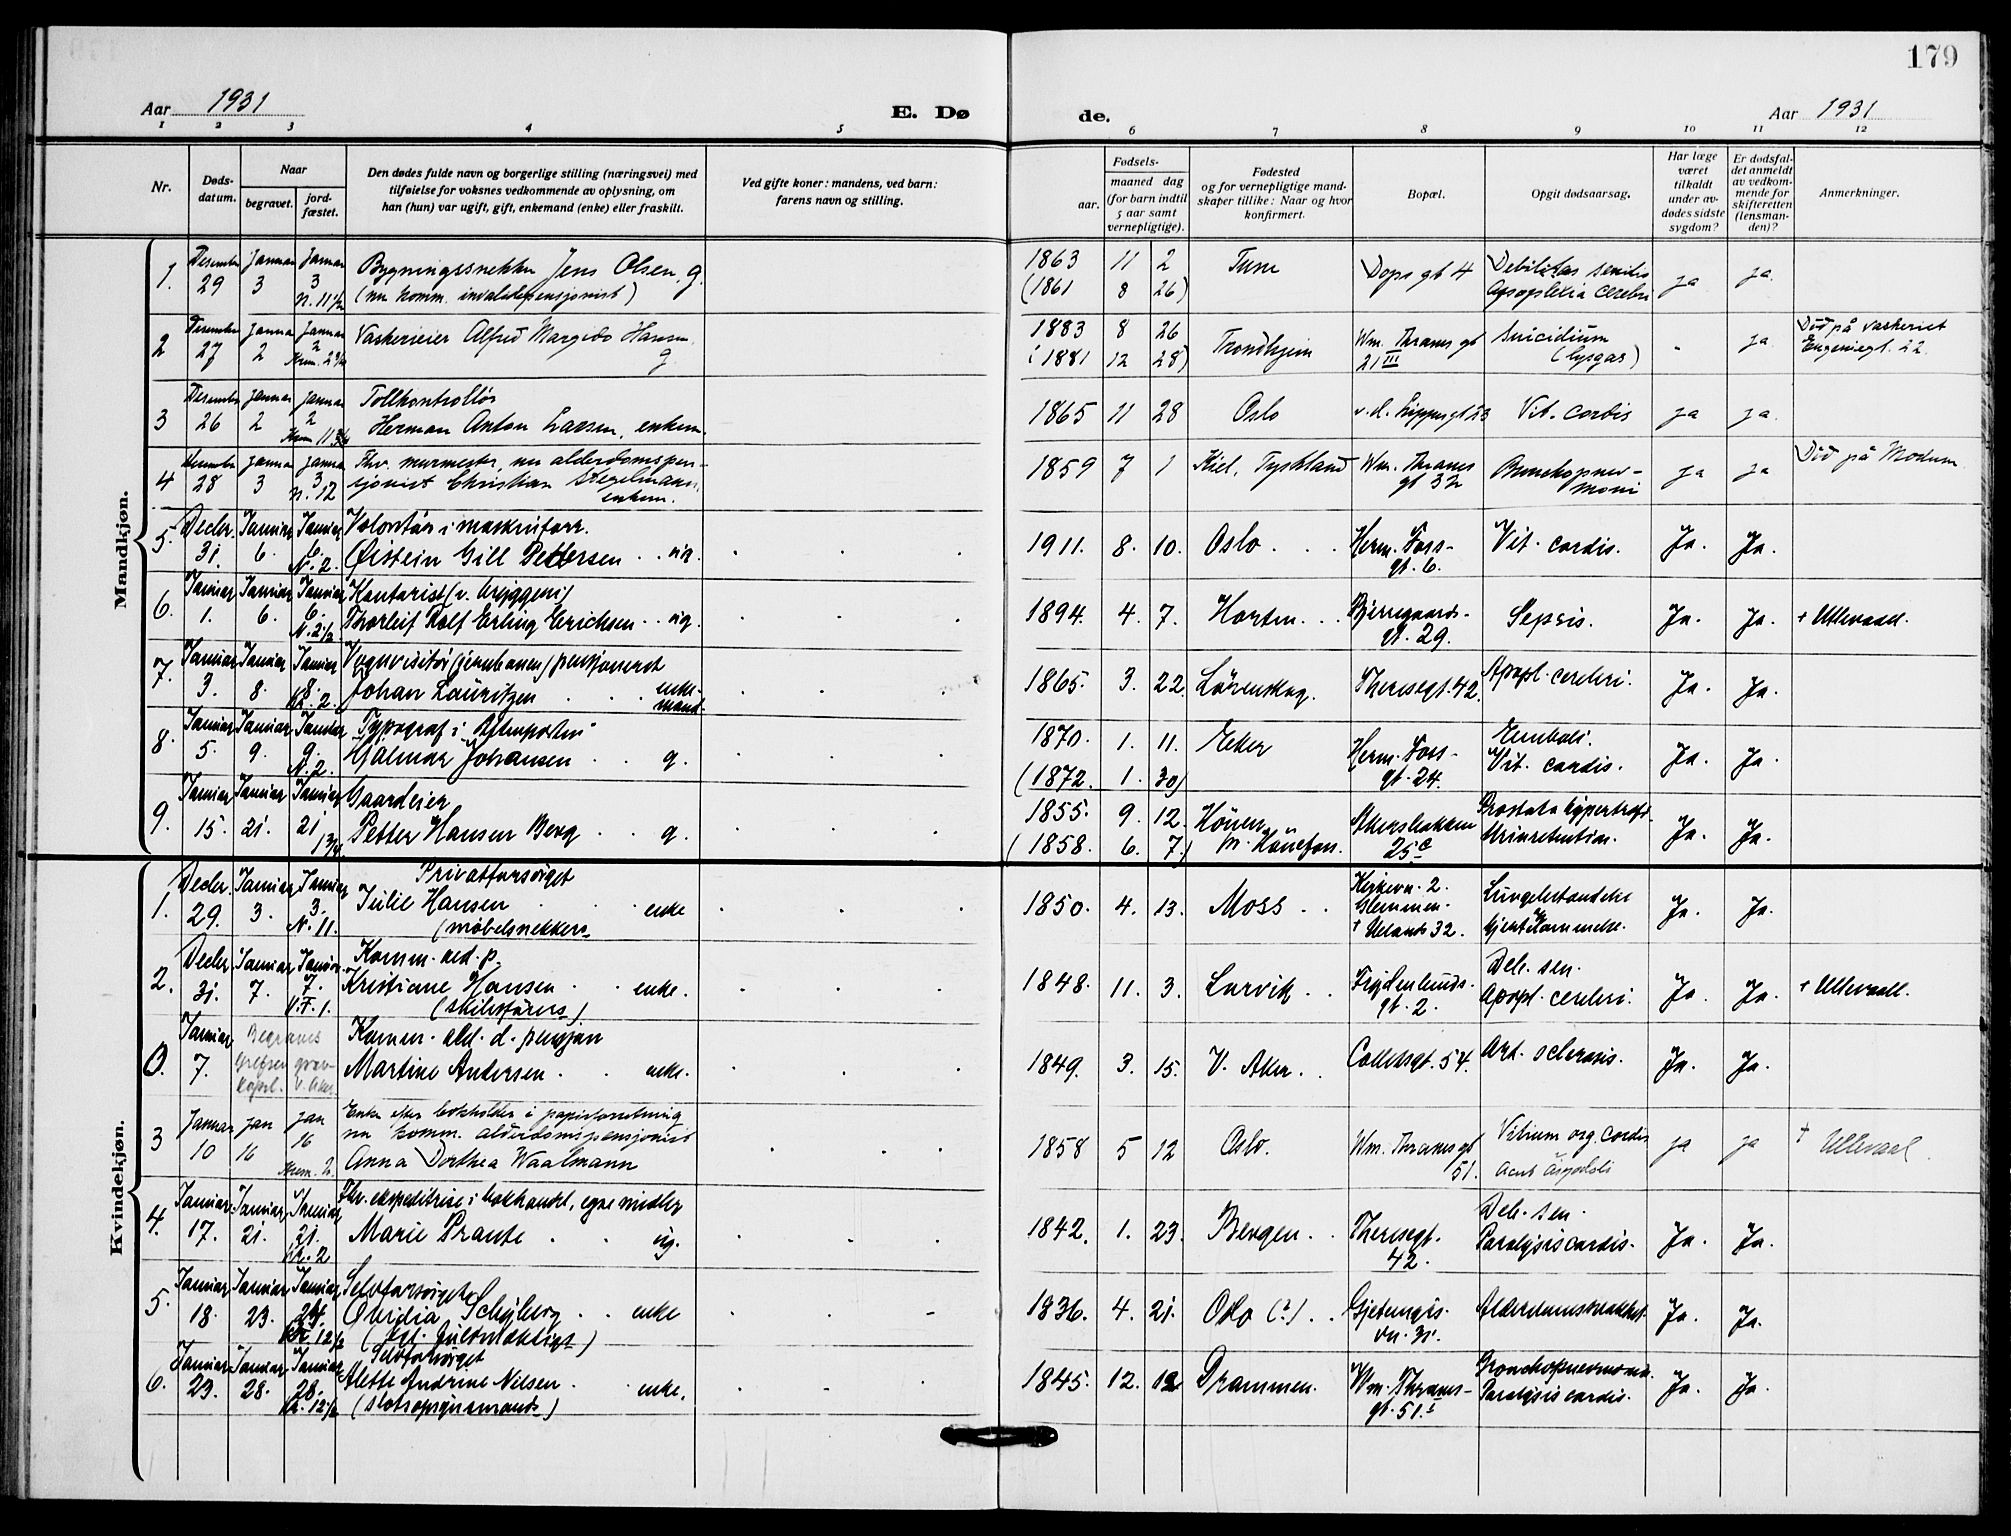 179
Aar 1931
E. Dø de.
Aar 1931
1 2 3 4 5 6 7 8 9 10 11 12
Nr.
Døds-
datum.
Naar
begravet.
jord-
fæstet.
Den dødes fulde navn og borgerlige stilling (næringsvei) med
tilføielse for voksnes vedkommende av oplysning, om
han (hun) var ugift, gift, enkemand (enke) eller fraskilt.
Ved gifte koner: mandens, ved barn:
farens navn og stilling.
Fødsels-
aar. maaned dag
(for barn indtil
5 aar samt
vernepligtige).
Fødested
og for vernepligtige mand-
skaper tillike: Naar og hvor
konfirmert.
Bopæl.
Opgit dødsaarsag.
Har læge
været
tilkaldt
under av-
dødes sidste
sygdom?
Er dødsfal-
det anmeldt
av vedkom-
mende for
skifteretten
(lensman-
den)?
Anmerkninger.
Mandkjøn.
1. Desember Januar Januar Bygningssnekker Jens Olsen, g. 1863 11 2 Tune Dopsgt 4 Debilitas senilis ja ja.
29 3 3 (nu komm. invalidepensjonist) (1861 8 26) Apoplexia cerebri
n. 11½
2 Desember Januar Januar Vaskerieier Alfred Margido Hansen 1883 8 26 Trondhjem Wm. Thranes gt Suicidium - ja Død på vaskeriet
27 2 2 g (1881 12 28) 21 III (lysgas) Eugeniegt. 22.
Krem.
3 Desember Januar Januar Tollkontrollør 1865 11 28 Oslo Vit. cordis ja ja.
26 2 2 Herman Anton Larsen, enkem.
Krem 11
4 Desember Januar Januar Fhv. murmester, nu alderdomspen- 1859 7 1 Kiel, Tyskland Wm. Thranes ja ja Død på Modum
28 3 3 sjonist Christian Stegelmann, gt
n. 12 enkem.
5. Decbr. Januar Januar Volontør i maskinforr. 1911. 8. 10. Oslo Herm. Foss- Vit. cordis. Ja. Ja.
31. 6 6. Øistein Gill Pettersen ug. gt. 6.
N. 2.
6. Januar Januar Januar Kontorist (v. bryggeri) 1894. 4. 7. Horten Bjerregaards- Sepsis. Ja. Ja. + Ullevaal.
1. 6. 6. Thorleif Rolf Erling Erichsen ug. gt. 29.
N. 2½
7. Januar Januar Januar Vognvisitør (jernbanen) pensjonert 1865. 3. 22. Lørenskog. Theresegt. 42. Apopl. cerebri. Ja. Ja.
3. 8. 8. Johan Lauritzen enke-
2. mand.
8. Januar Januar Januar Typograf i Aftenposten 1870. 1. 11. Eker Herm. Foss- Emboli. Ja. Ja.
5. 9. 9. Hjalmar Johansen g. (1872. 1. 30) gt. 24. Vit. cordis.
N. 2.
9. Januar Januar Januar Gaardeier 1855. 9. 12. Hönen Akersbakken Prostata hypertrofi Ja. Ja.
15. 21. 21 Petter Hansen Berg g. (1858. 6. 7.) Hönefoss. 25c Urinretention.
Kvindekjøn.
1. Decbr. Januar Januar Privatforsørget 1850. 4. 13. Moss Kirkevn. 2. Lungebetændelse Ja. Ja.
29. 3. 3. Julie Hansen enke Glemmen. og
N. 11. (møbelsnekkers † Uelands 32. hjertelammelse.
2. Decbr. Januar Januar Komm. ald. p. 1848. 11. 3. Larvik Frydenlunds- Deb. sen. Ja. Ja. + Ullevaal.
31. 7. 7. Kristiane Hansen enke. gt. 2. Apopl. cerebri.
V.F. 1. (skibsførers)
0. Januar Begraves Komm. ald. d. pensjon 1849. 3. 15. V. Aker Colletsgt. 54. Art. sclerosis. Ja. Ja.
7. Grefsen grav- Martine Andersen enke.
kapel. V. Aker
3 Januar jan jan Enke efter bokholder i papirforretning 1858 5 12 Oslo. Wm. Thranesgt Vitium org. cordis ja ja † Ullevaal
10 16 16 nu komm. alderdomspensjonist 51.
Krem. Anna Dorthea Waalmann
4. Januar. Januar. Januar Fhv. ekspeditrise i bokhandel, egne midler 1842. 1. 23. Bergen Theresegt. Deb. sen. Ja. Ja.
17. 21. 21. Marie Prante ug. 42. Paralysis cordis.
2
5. Januar Januar Januar Selvforsørget 1836. 4. 21. Oslo (?) Gjetemyrs- Alderdomssvakhet. Ja. Ja.
18. 23. Ovidia Schjberg enke vn. 31.
12½ (kgl. fuldmæktigs)
6. Januar Januar Januar Selvforsørget 1845. 12. 12 Drammen. Wm. Thranes- Bronchopneumonia. Ja. Ja.
23. 28. 28. Alette Andrine Nilsen enke. gt. 51. Paralysis cordis.
12½ (slotsopsynsmands)